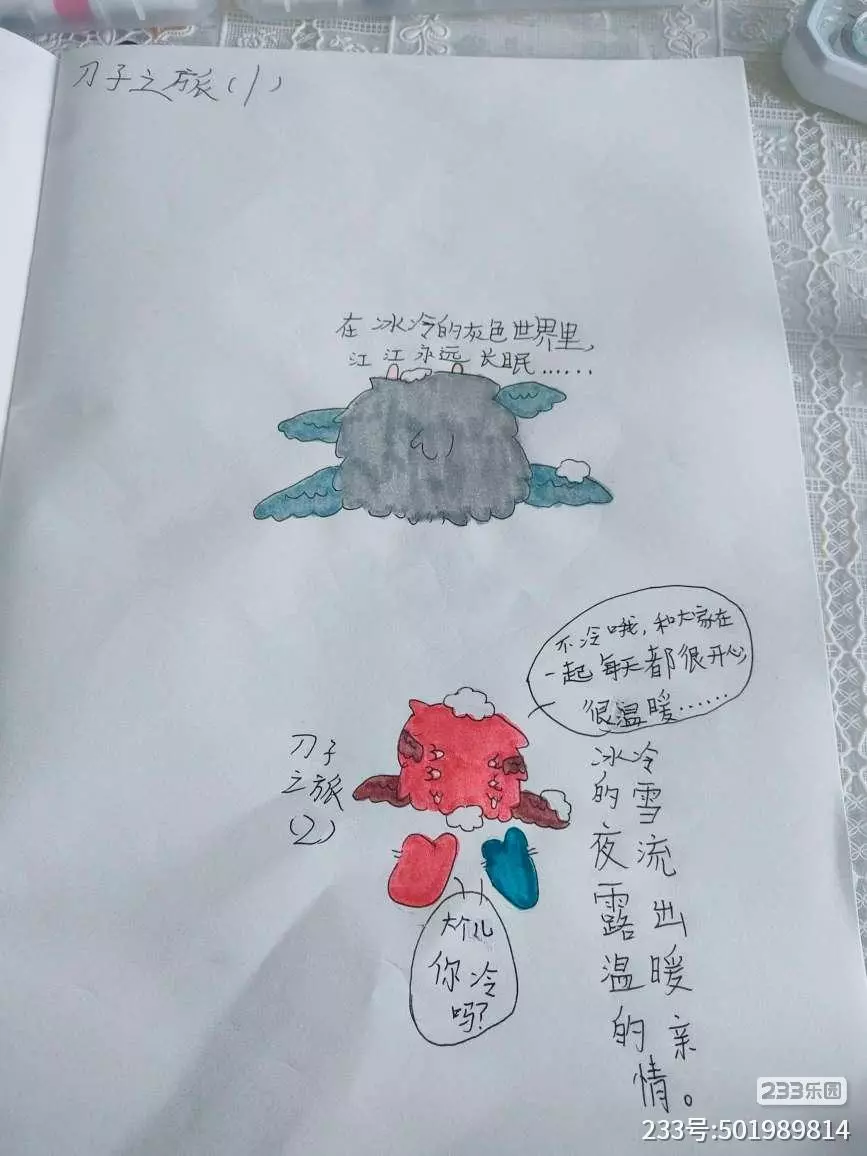 刀子之旅(1)
在冰冷的灰色世界里,
江江永远长眠......
不冷哦,和大家在
一起每天都很开心,
很温暖......
刀子
之旅
(2)
大个儿
你冷
吗?
冰冷
的雪
夜流
露出
温暖
的亲
情。
233乐园
233号:501989814